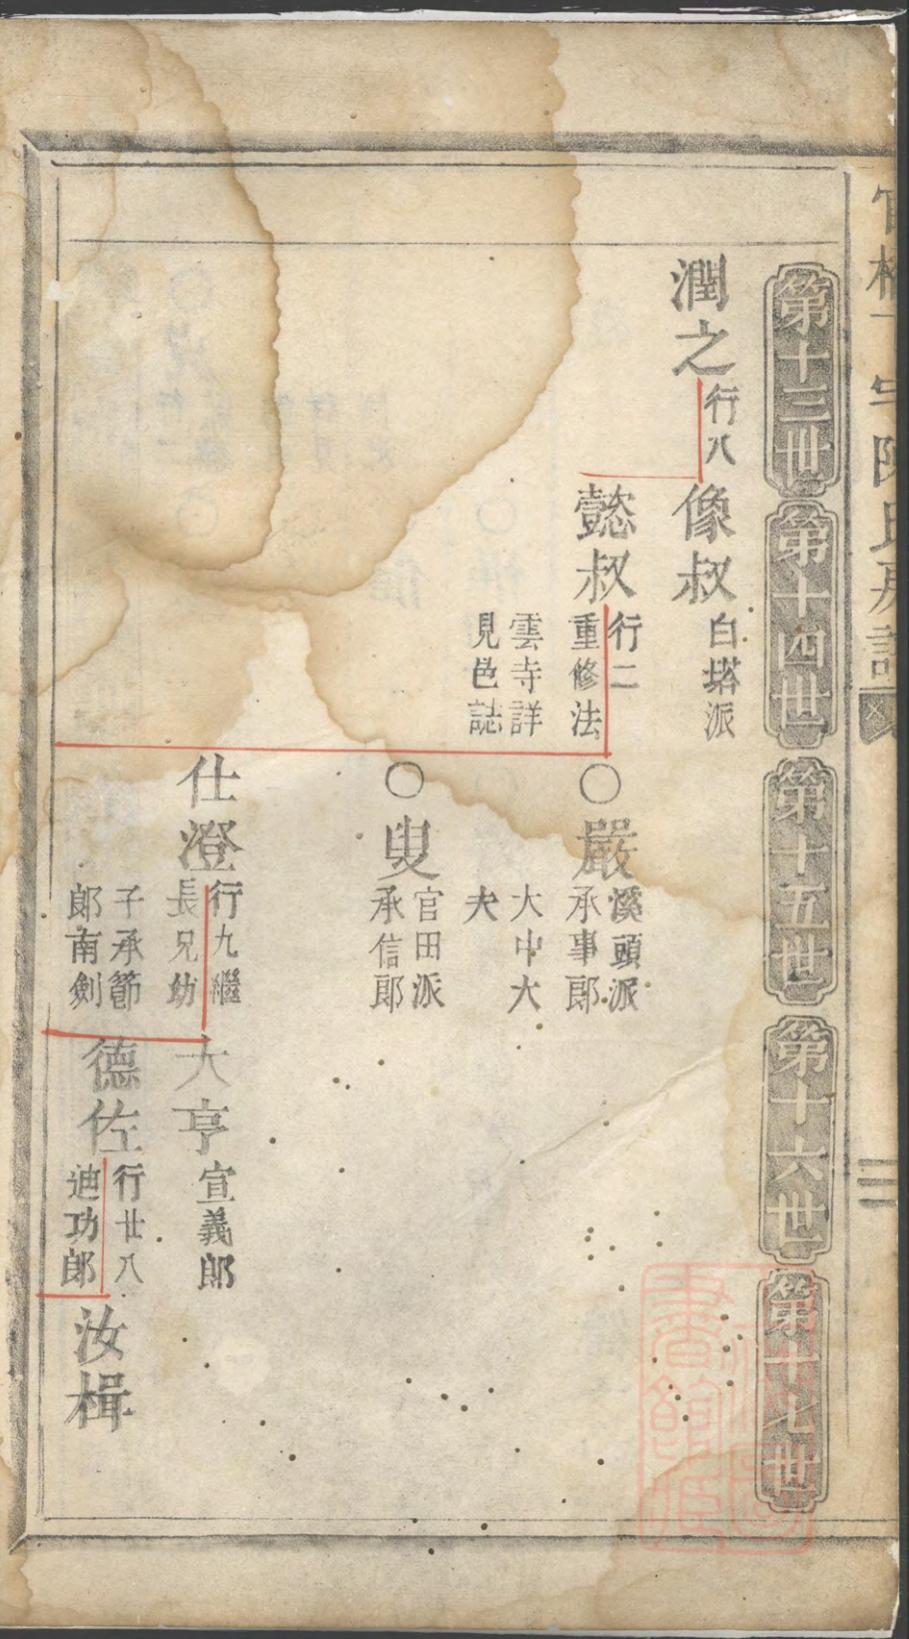 陳氏房譜
第十三世
第十四世
第十五世
第十六世
第十七世
潤之
行八
像叔
白塔派
懿叔
行二
重修法
雲寺詳
見邑誌
〇嚴
溪頭派
承事郎
大中大
夫
〇叟
官田派
承信郎
仕澄
行九繼
長兄幼
子承節
郎南劍
大亨
宣義郎
德佐
行廿八
迪功郎
汝楫
二